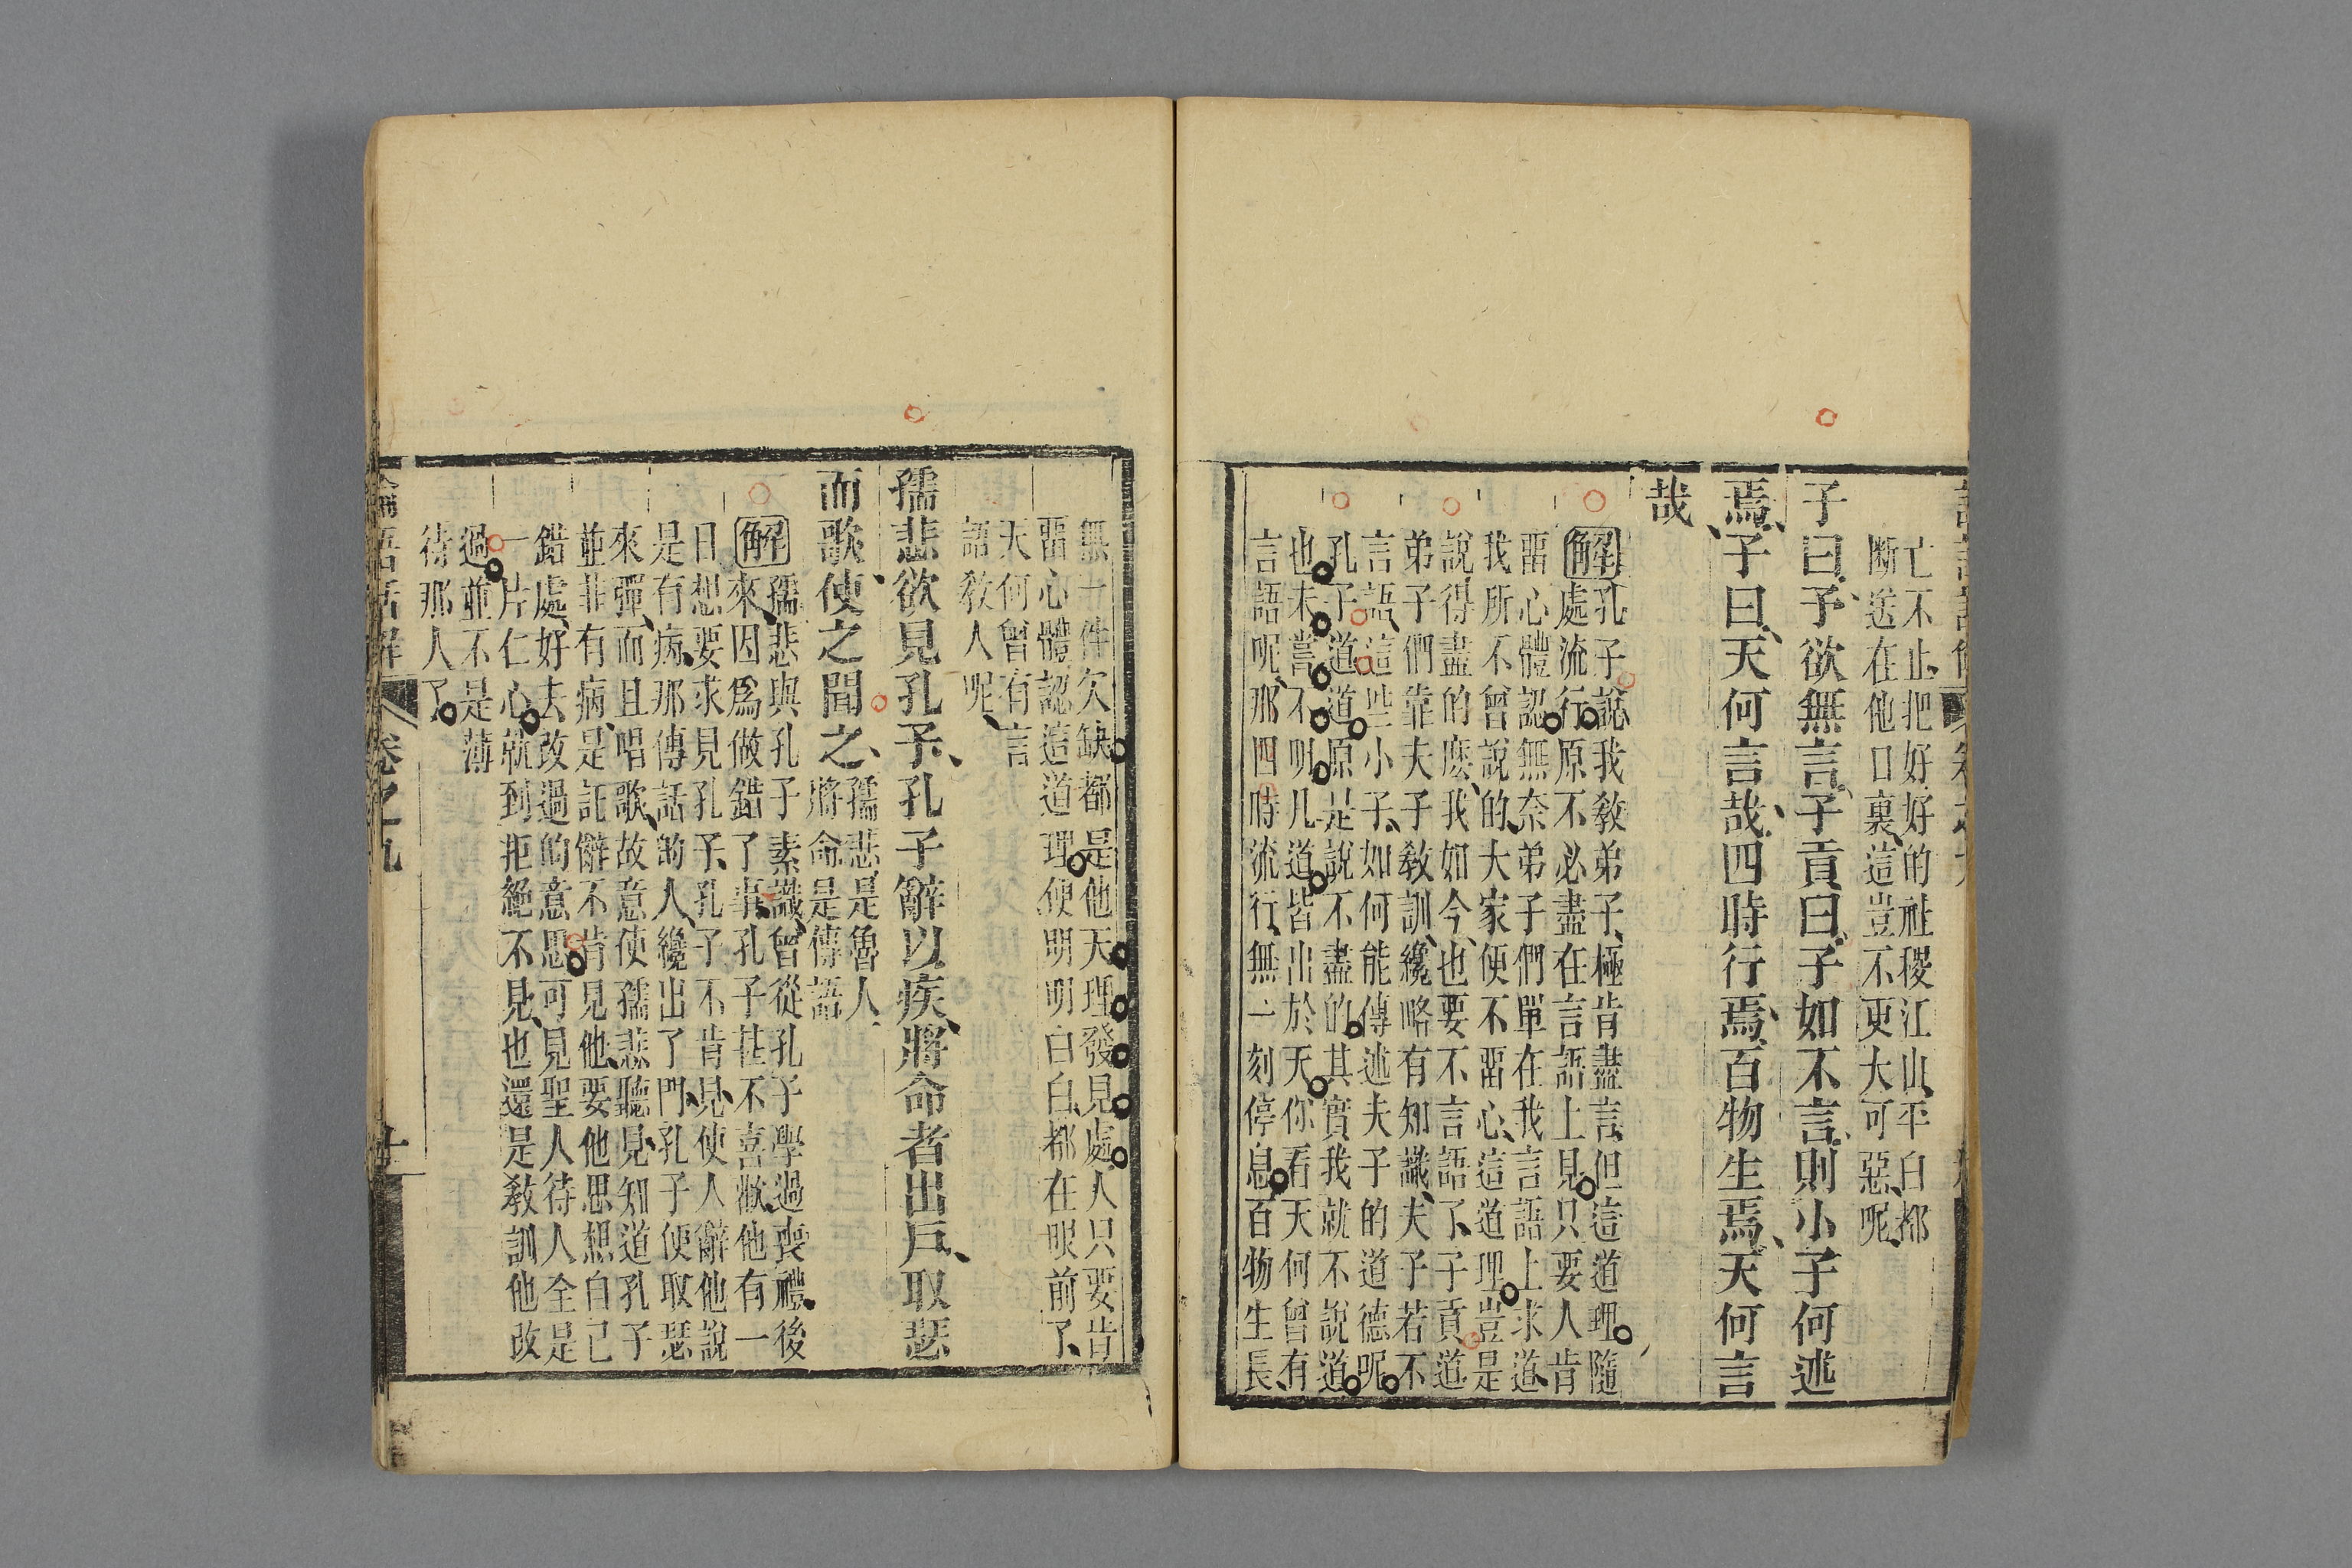 亡不止把好好的社稷江山平白都
斷送在他口裏這豈不更大可惡呢
子曰予欲無言子貢曰子如不言則小子何述
焉子曰天何言哉四時行焉百物生焉天何言
哉
解
孔子說我教弟子極肯盡言但這道理隨
處流行原不必盡在言語上見只要人肯
畱心體認無奈弟子們單在我言語上求道
我所不曾說的大家便不畱心這道理豈是
說得盡的麼我如今也要不言語了子貢道
弟子們靠夫子教訓纔略有知識夫子若不
言語這些小子如何能傳述夫子的道德呢
孔子道道原是說不盡的其實我就不說道
也未嘗不明凡道皆出於天你看天何曾有
言語呢那四時流行無一刻停息百物生長
無一件欠缺都是他天理發見處人只要肯
畱心體認這道理便明明白白都在眼前了
天何曾有言
語教人呢
孺悲欲見孔子孔子辭以疾將命者出戶取瑟
而歌使之聞之
孺悲是魯人
將命是傳語
解
孺悲與孔子素識曾從孔子學過喪禮後
來因爲做錯了事孔子甚不喜歡他有一
日想要求見孔子孔子不肯見使人辭他說
是有病那傳話的人纔出了門孔子便取瑟
來彈而且唱歌故意使孺悲聽見知道孔子
並非有病是託辭不肯見他要他思想自己
錯處好去改過的意思可見聖人待人全是
一片仁心就到拒絕不見也還是教訓他改
過並不是薄
待那人了
論語話解
卷之九